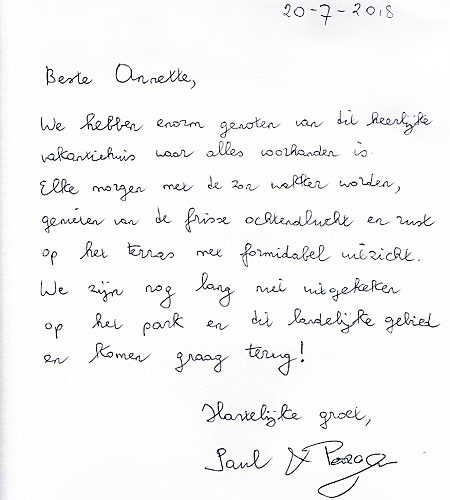 20-7-2018
Beste Annette,
We hebben enorm genoten van dit heerlijke
vakantiehuis waar alles voorhanden is.
Elke morgen met de zon wakker worden,
genieten van de frisse ochtendlucht en rust
op het terras met formidabel uitzicht.
We zijn nog lang niet uitgekeken
op het park en dit landelijke gebied
en komen graag terug!
Hartelijke groet,
Paul &